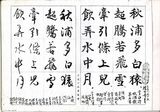 秋浦多白猿
超騰若飛雪
牽引條上兒
飲弄水中月
秋浦多白猿
超騰若飛雪
牽引條上兒
飲弄水中月